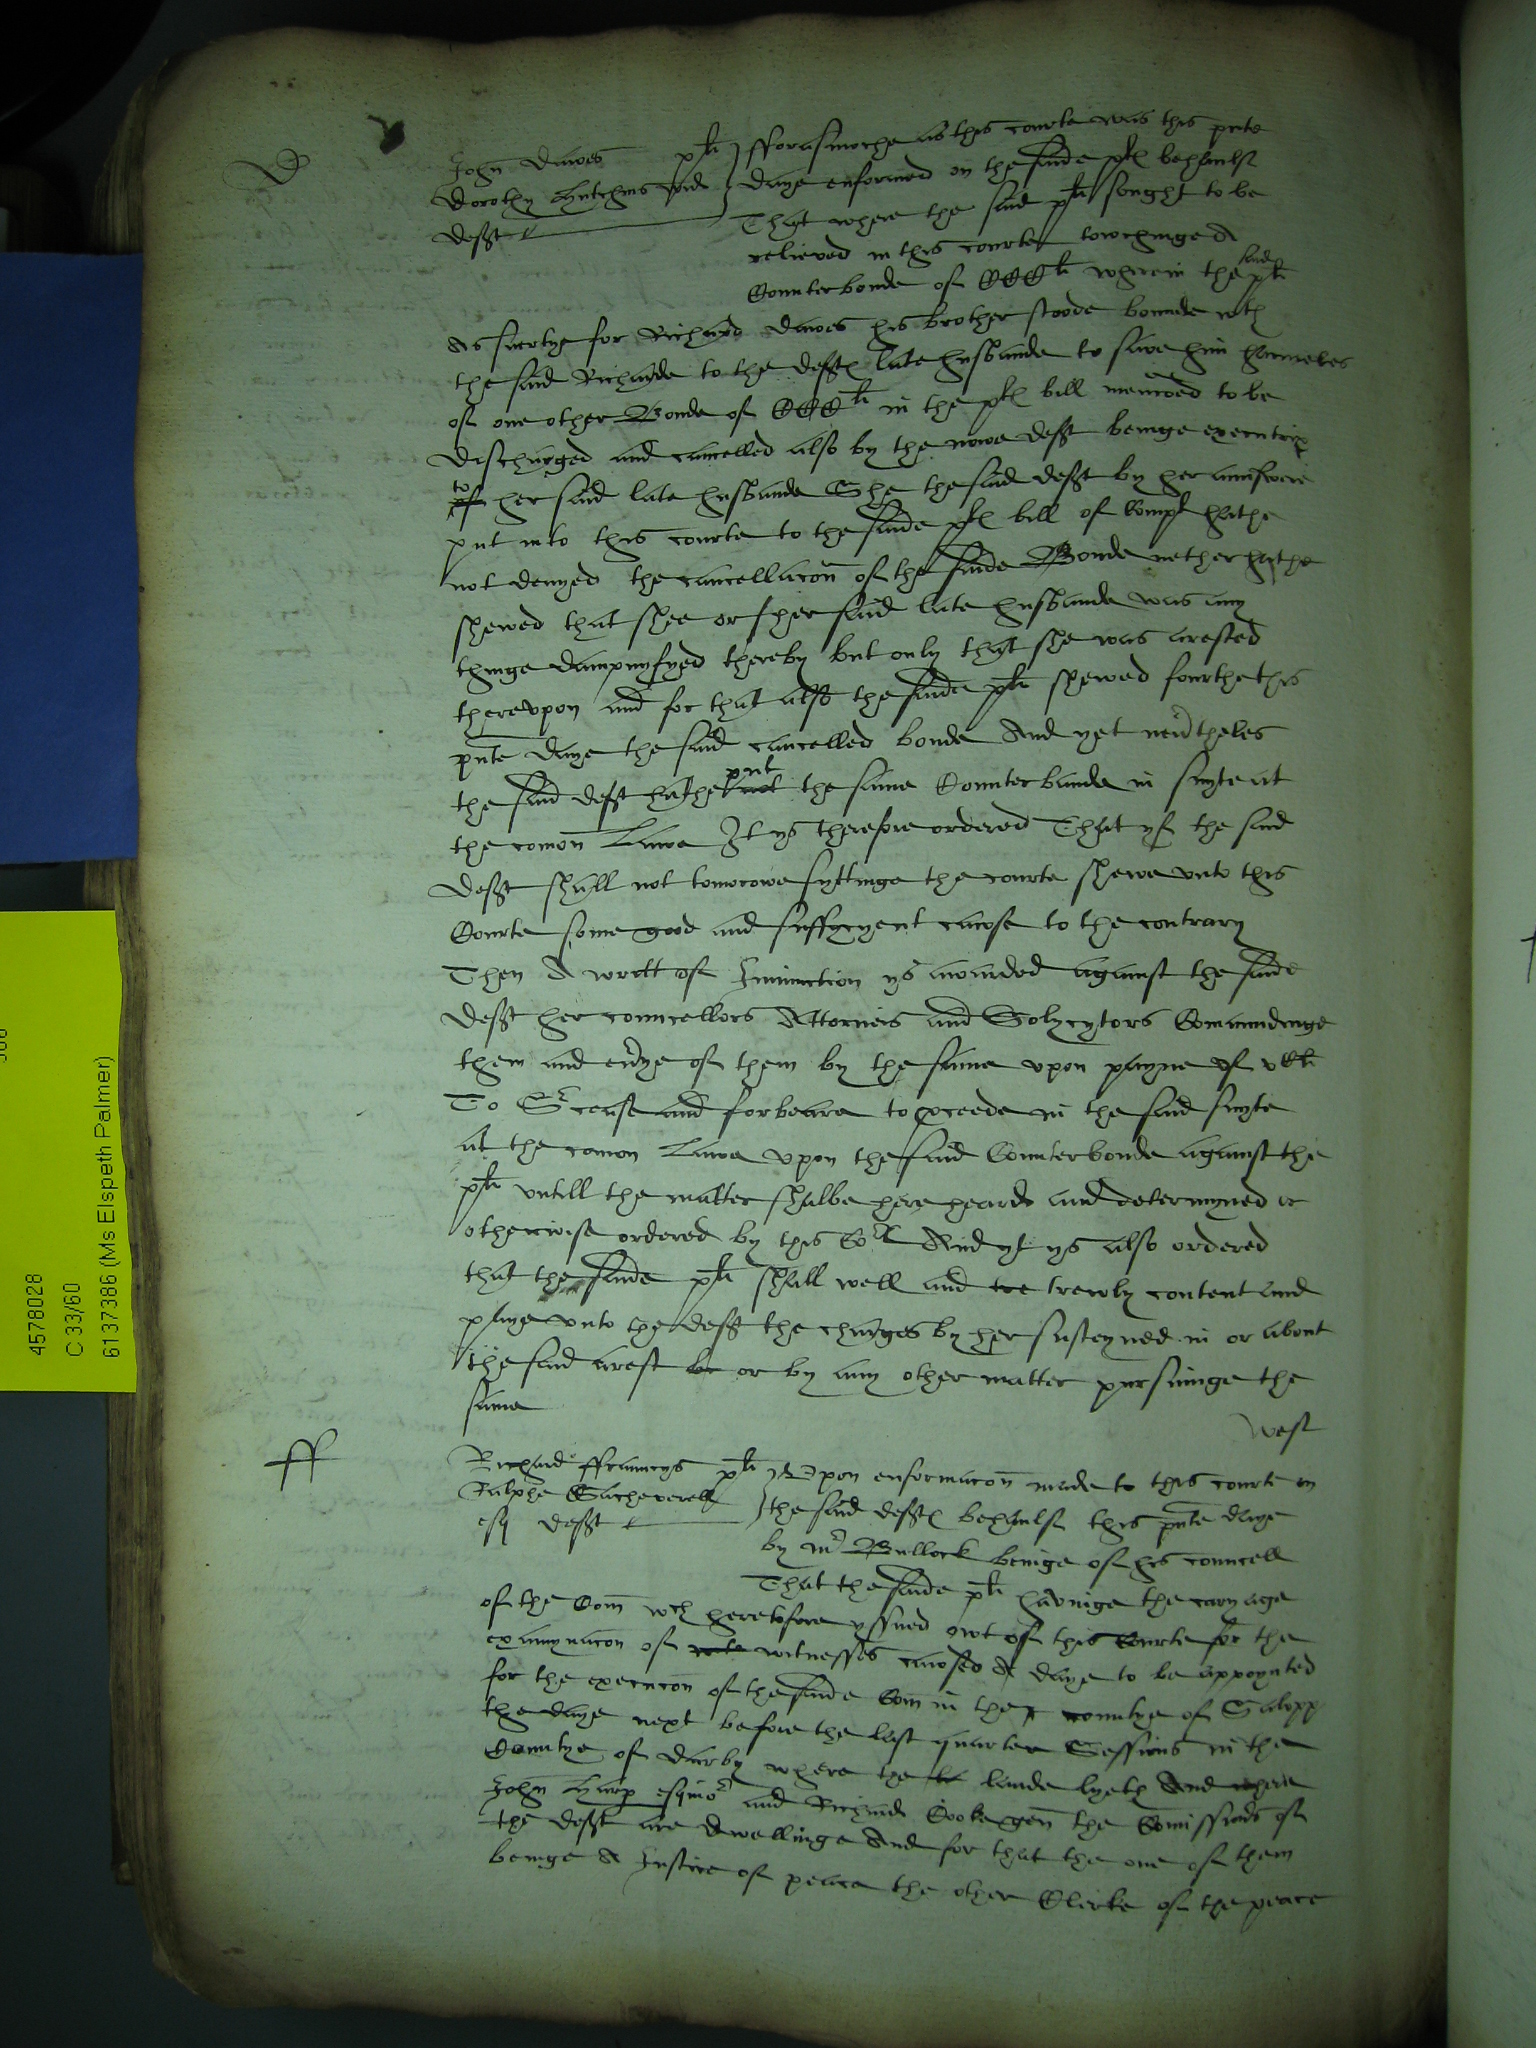 D
John Dawes pltí } Fforasmoche as this courte was this pnte
Dorothy Hutchins wid } daye enformed on the saide pltes behaulf
deft
That where the said plt sought to be
relieved in this courte towchinge A
Counterbonde of CCCli wherein the said plt
As suertye for Richard Dawes his brother stoode bounde wth
the said Richarde to the deftes late husbande to save him harmeles
of one other Bonde of CCCli in the pltes bill mencoed to be
discharged and cancelled also by the nowe deft beinge executrix
to her said late husbande She the said deft by her aunswere
put into this courte to the saide pltes bill of Complt hathe
not denyed the cancellacon of the saide Bonde nether hathe
shewed that shee or her said late husbande was any
thinge dampnyfyed thereby but only that she was arested
therevpon and for that also the saide plt shewed fourthe this
pnte daye the said cancelled bonde And yet nevertheles
the said deft hathe put the same Counterbande in suyte at
the comon Lawe It ys therefore ordered That yf the said
deft shall not tomorowe syttinge the courte shewe vnto this
Courte some good and suffycyent cawse to the contrary
Then A writt of Iniunction ys awarded against the saide
deft her councellors Attorneis and Solycytors Comaundinge
them and eu'ye of them by the same vpon payne of vCli
To Srcease and forbeare to pceede in the said suyte
at the comon Lawe vpon the said Counterbonde against the
plt vntill the matter shalbe here heard and determyned or
otherwise ordered by this Cort And yt ys also ordered
that the saide plt shall well and tre trewly content and
paye vnto the deft the charges by her susteyned in or about
the said arest be or by any other matter pursuinge the
same
West
ff
Richard Ffrauncys plt } Vpon enformacon made to this courte on
Ralphe Sacheverell } the said deftes behaulf this pnte daye
esq deft
by mr Bullock beinge of his councell
That the saide plt havinge the caryage
of the Com wch heretofore yssued owt of this Courte for the
examynacon of witnesses cawsed A daye to be appoynted
for the execucon of the saide Com in the countye of Salopp
the daye next before the last quarter Sessions in the
Countye of Darby where the lande lyeth And where
John Harp esquior and Richard Cooke gen the Comissioners of
the deft are dwellinge And for that the one of them
beinge A Iustice of peace the other Clerke of the peace
4578028
C 33/60
6137386 (Ms Elspeth Palmer)